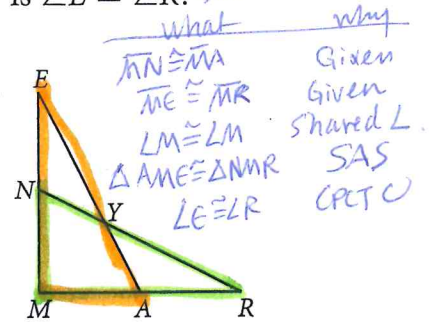 is ∠E ≅ ∠R?
what why
M̅N̅≅M̅A̅ Given
M̅E̅ ≅ M̅R̅ Given
∠M≅∠M Shared ∠.
Δ AME≅ΔNMR SAS
∠E≅∠R CPCTC
E
N
Y
M
A
R